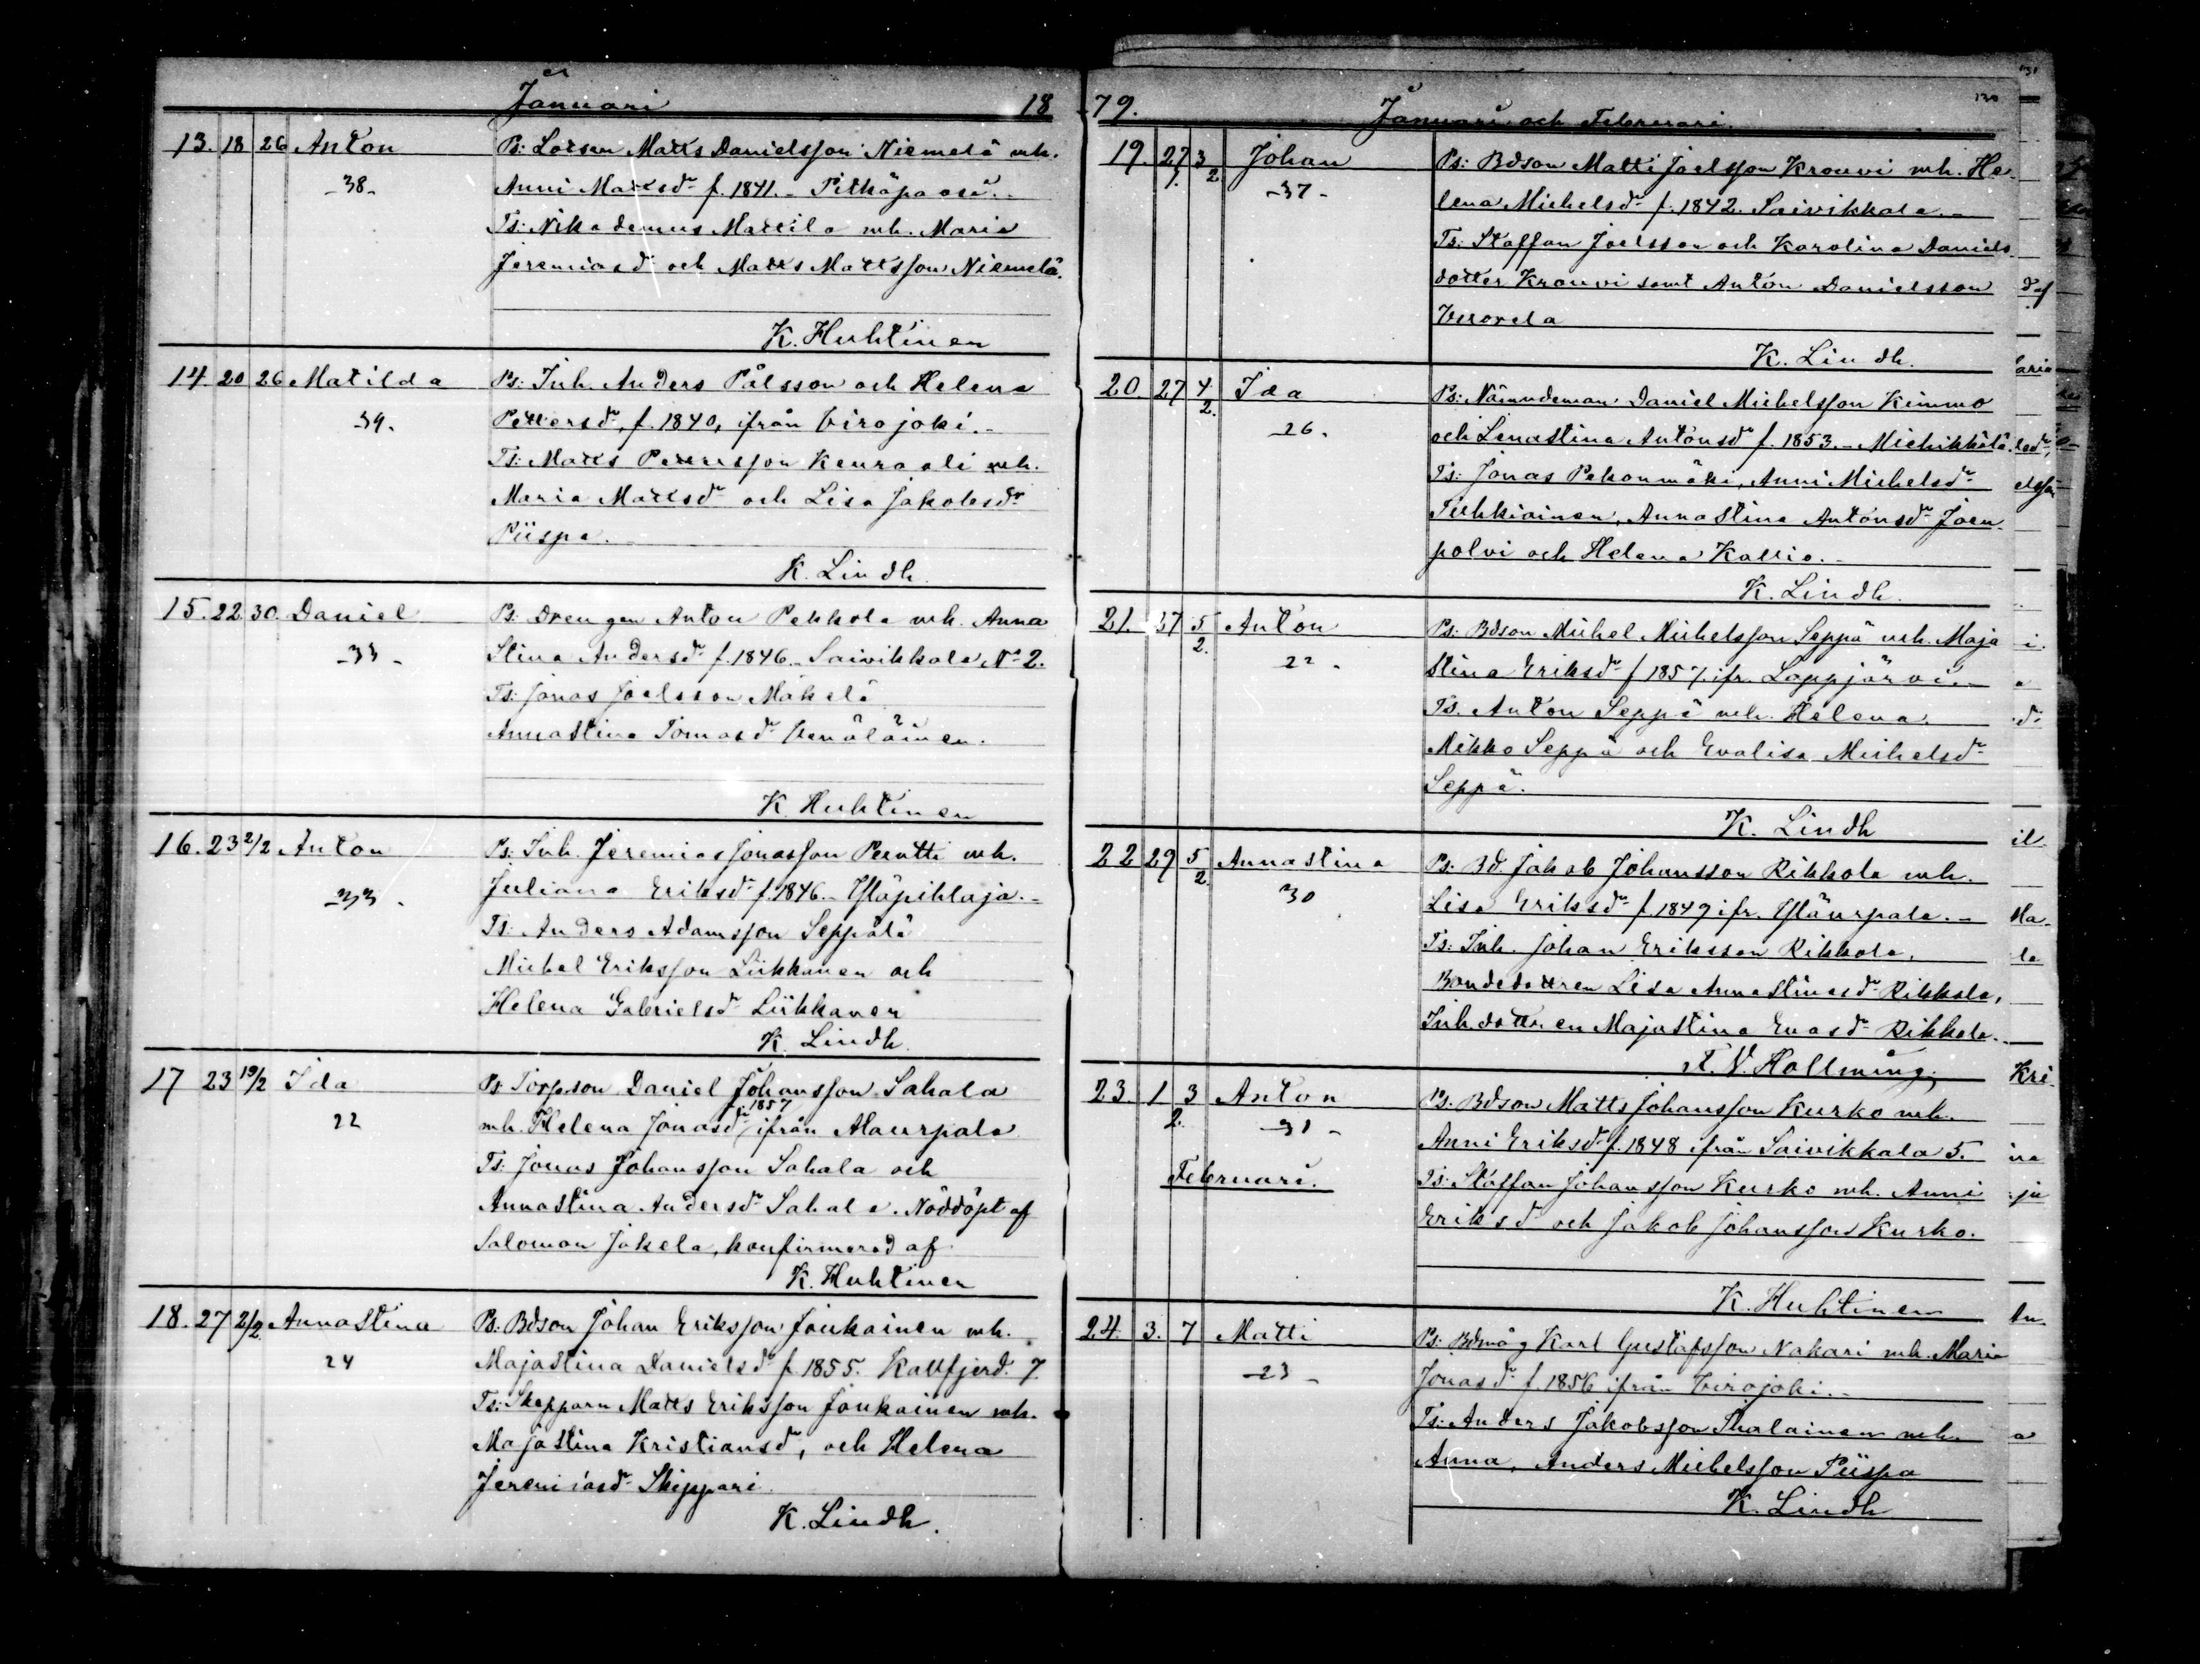 Januari 18
13. 18 26 Anton Ps: Lotsen Matts Danielsson Niemelä mh.
-38- Anni Mattsdr f. 1841. - Pitkäpaasi. -
Ts: Nikademus Mattila mh. Maria
Jeremiasd och Matts Mattsson Niemelä.
K. Huhtinen
14. 20 26 Matilda Ps: Inh. Anders Pålsson och Helena
39. Pettersdr, f. 1840, ifrån Virojoki. -
Ts: Matts Pettersson Keuraali mh.
Maria Mattsdr och Lisa Jakobsdr
Piispa.
K. Lindh.
15. 22 30. Daniel Ps: Drengen Anton Pekkola mh. Anna
-33- Stina Andersdr f. 1846. - Saivikkala No 2.
Ts: Jonas Joelsson Mäkelä
Annastina Tomasdr Venäläinen.
K. Huhtinen
16. 23 2/2 Anton Ps: Inh. Jeremias Jonasson Perätti mh.
-33- Juliana Eriksdr f. 1846. - Yläpihlaja. -
Ts: Anders Adamsson Seppälä
Michel Eriksson Liikkanen och
Helena Gabrielsdr Liikkanen
K. Lindh.
17 23 19/2 Ida Ps Torpson Daniel Johansson Sahala
f. 1857
22 mh. Helena Jonasdr, ifrån Alaurpala
Ts: Jonas Johansson Sahala och
Annastina Andersdr Sahala. Nöddöpt af
Salomon Jäkelä, konfirmerad af
K. Huhtinen
18. 27 2/2 Annastina Ps. Bdson Johan Eriksson Joukainen mh.
24 Majastina Danielsdr f. 1855. Kallfjerd. 7.
Ts: Skepparn Matts Eriksson Joukainen mh.
Majastina Kristiansdr, och Helena
Jeremiasdr Skippari
K. Lindh.
79. Januari och Februari. 130
19. 27/1. 3/2. Johan Ps: Bdson Matti Joelsson Krouvi mh. He-
-37- lena Michelsdr f. 1842. Saivikkala. -
Ts: Staffan Joelsson och Karolina Daniels
dotter Krouvi samt Anton Danielsson
Verovela
K. Lindh.
20. 27 4/2. Ida Ps: Nämndeman Daniel Michelsson Kimmo
26. och Lenastina Antonsdr f. 1853. - Miehikkälä.
Ts: Jonas Pekonmäki, Anni Michelsdr
Tuhkiainen, Annastina Antonsdr Joen-
polvi och Helena Kallio. -
K. Lindh.
21. 27 5/2. Anton Ps: Bdson Michel Michelsson Seppä mh. Maja
22. stina Eriksdr f 1857. ifr. Lappjärvi. -
Ts. Anton Seppä mh. Helena.
Mikko Seppä och Evalisa Michelsdr
Seppä.
K. Lindh
22 29 5/2. Annastina Ps: Bd. Jakob Johansson Rikkola mh.
30 Lisa Eriksdr f. 1849 ifr. Yläurpala. -
Ts: Inh. Johan Eriksson Rikkola,
Bondedottren Lisa Annastinasdr Rikkola,
Inh dottren Majastina Evasdr Rikkola. -
A. V. Hollming,
23. 1/2. 3 Anton Ps. Bdson Matts Johansson Kurko mh.
-31- Anni Eriksdr f. 1848 ifrån Saivikkala 5.
Februari. Ts: Staffan Johansson Kurko mh. Anni
Eriksdr och Jakob Johansson Kurko.
K. Huhtinen
24. 3. 7 Matti Ps: Bdmåg Karl Gustafsson Nakari mh. Maria
-23- Jonasdr f. 1856 ifrån Virojoki. -
Ts: Anders Jakobsson Sihalainen mh.
Anna, Anders Michelsson Piispa
K. Lindh